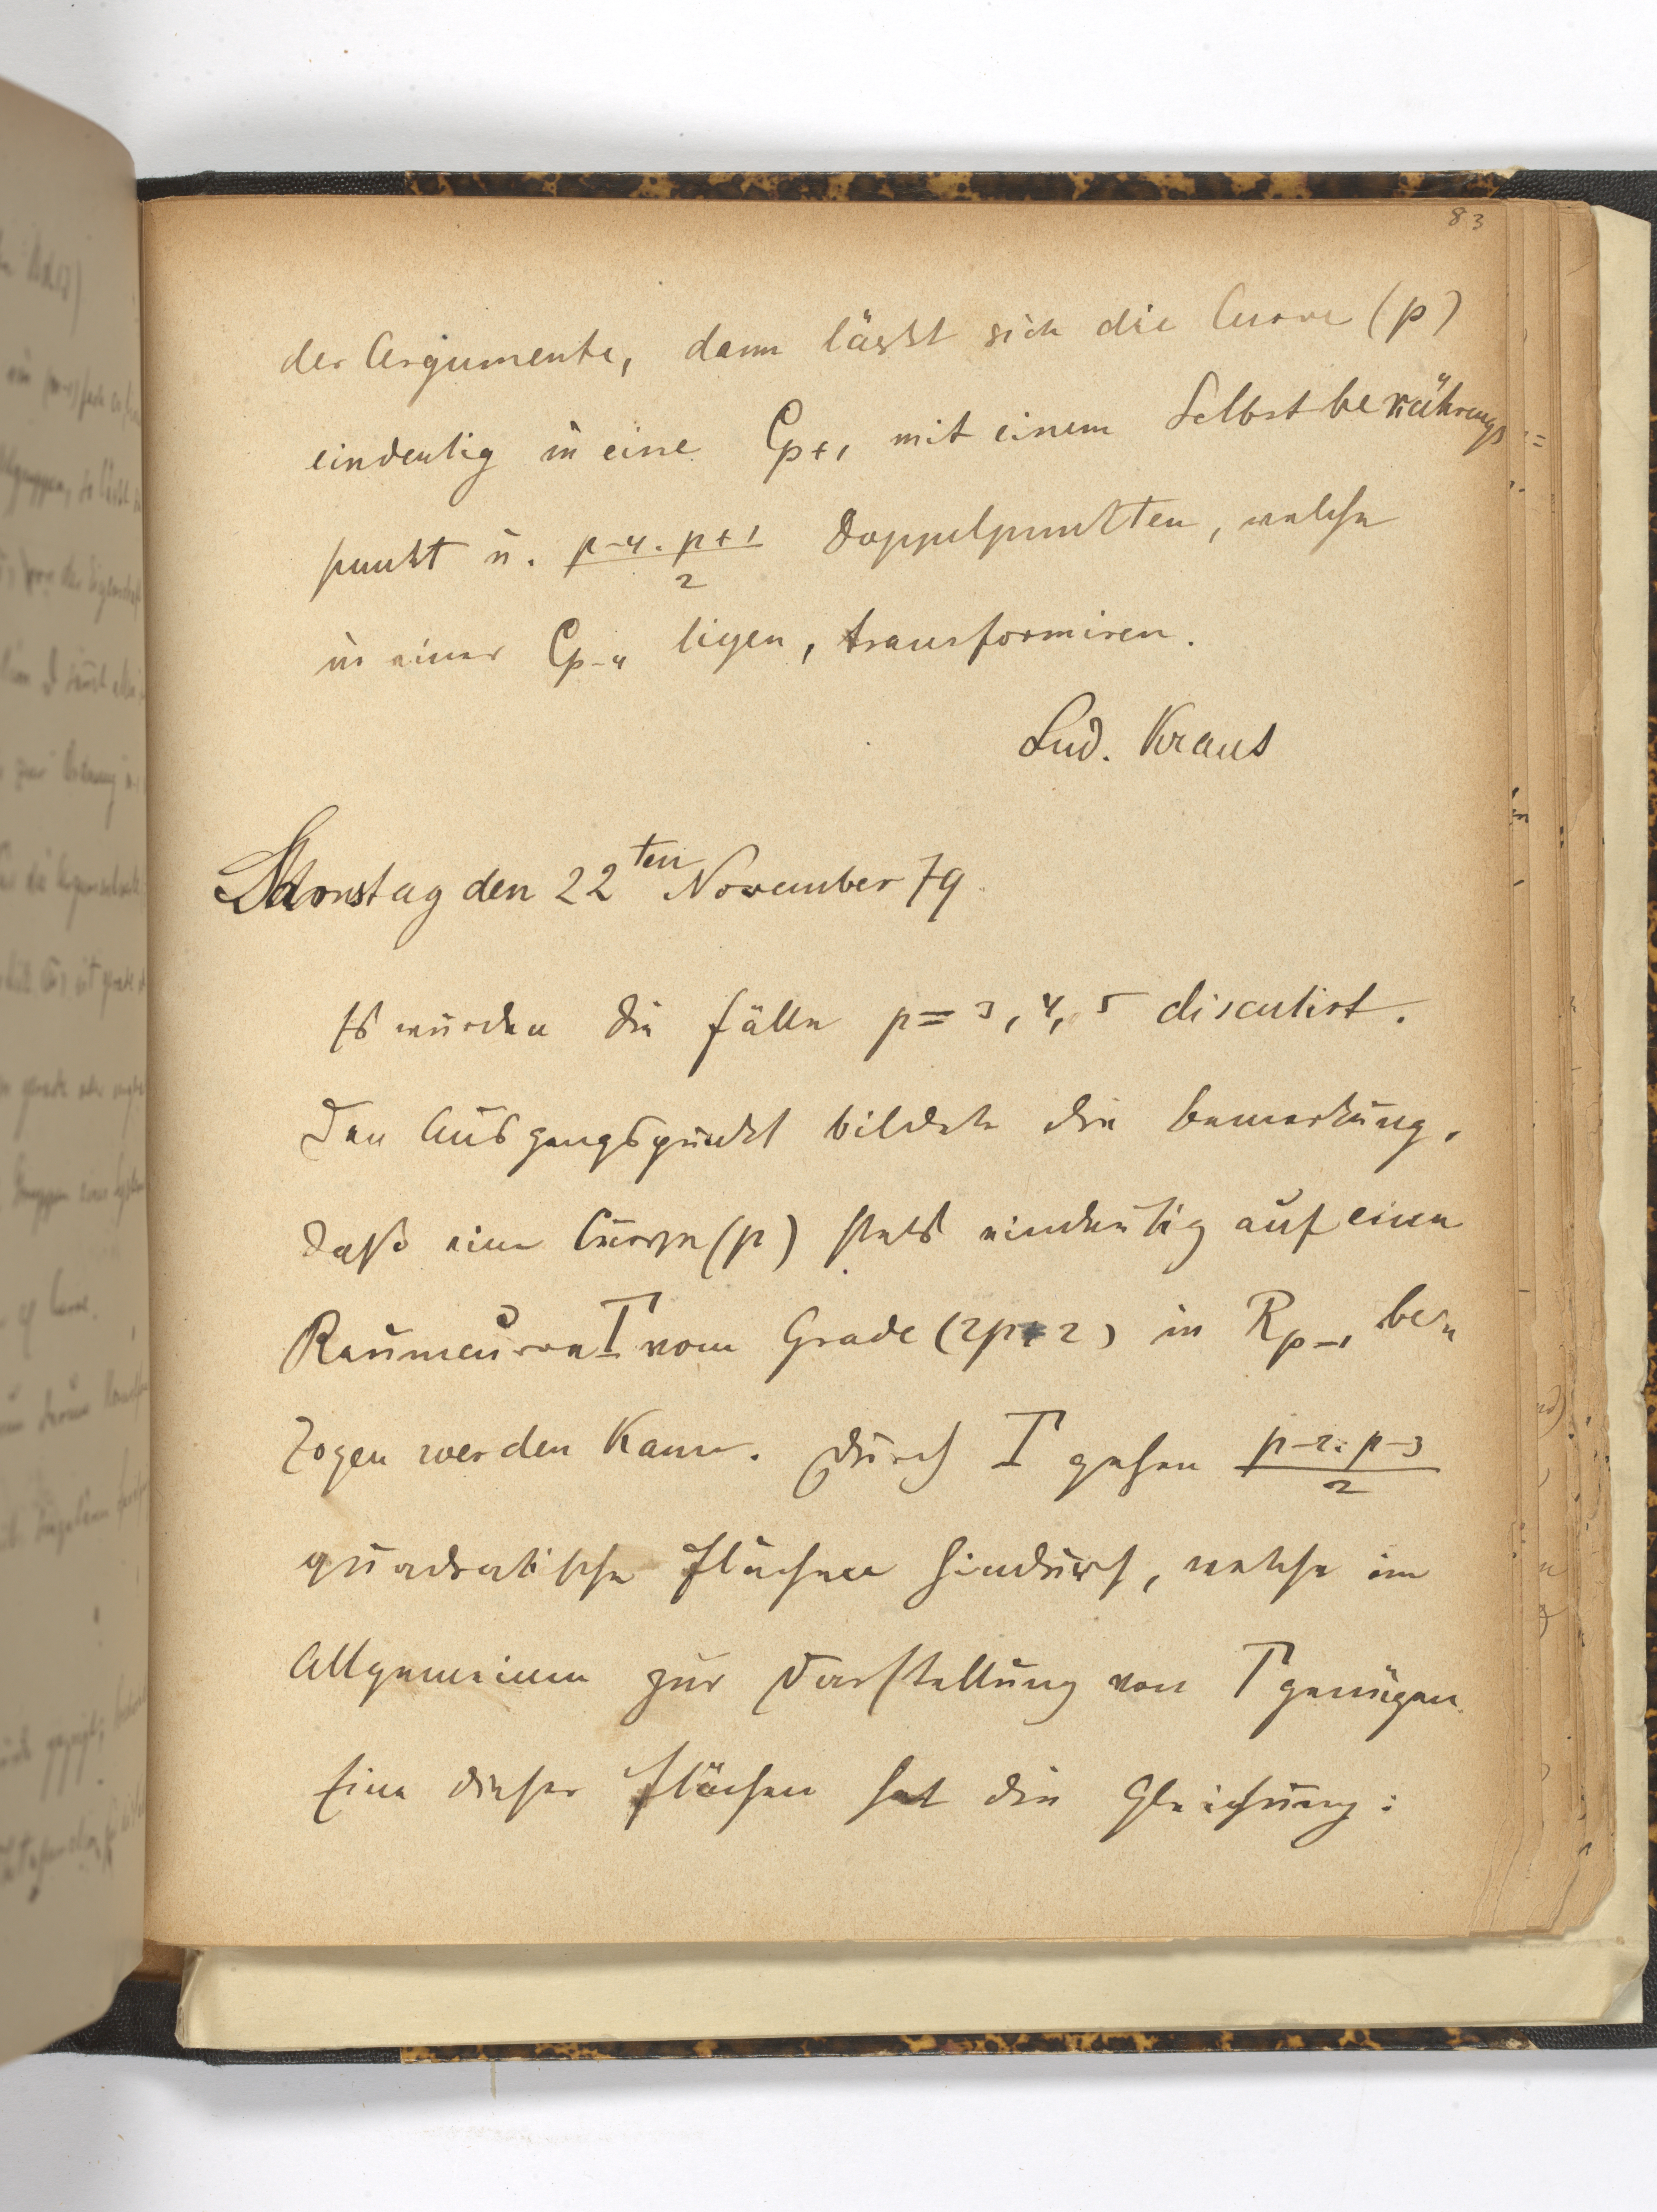 83
der Argumente, dann lässt sich die Curve (p)
eindeutig in eine C_{p+1} mit einem Selbstberührungs=
punkt u. \frac{p-4 . p+1}{2} Doppelpunkten, welche
in einer C_{p-4} ligen, transformiren.
Lud. Kraus
Samstag den 22ten November 79.
Es wurden die Fälle p = 3, 4, 5 discutirt.
Den Ausgangspunkt bildete die Bemerkung,
daß eine Curve (p) stets eindeutig auf eine
Raumcurve Γ vom Grade (2p-2) in R_{p-1} be„
zogen werden kann. Durch Γ gehen \frac{p-2 . p-3}{2}
quadratische Flächen hindurch, welche im
Allgemeinen zur Darstellung von Γ genügen.
Eine dieser Flächen hat die Gleichung: